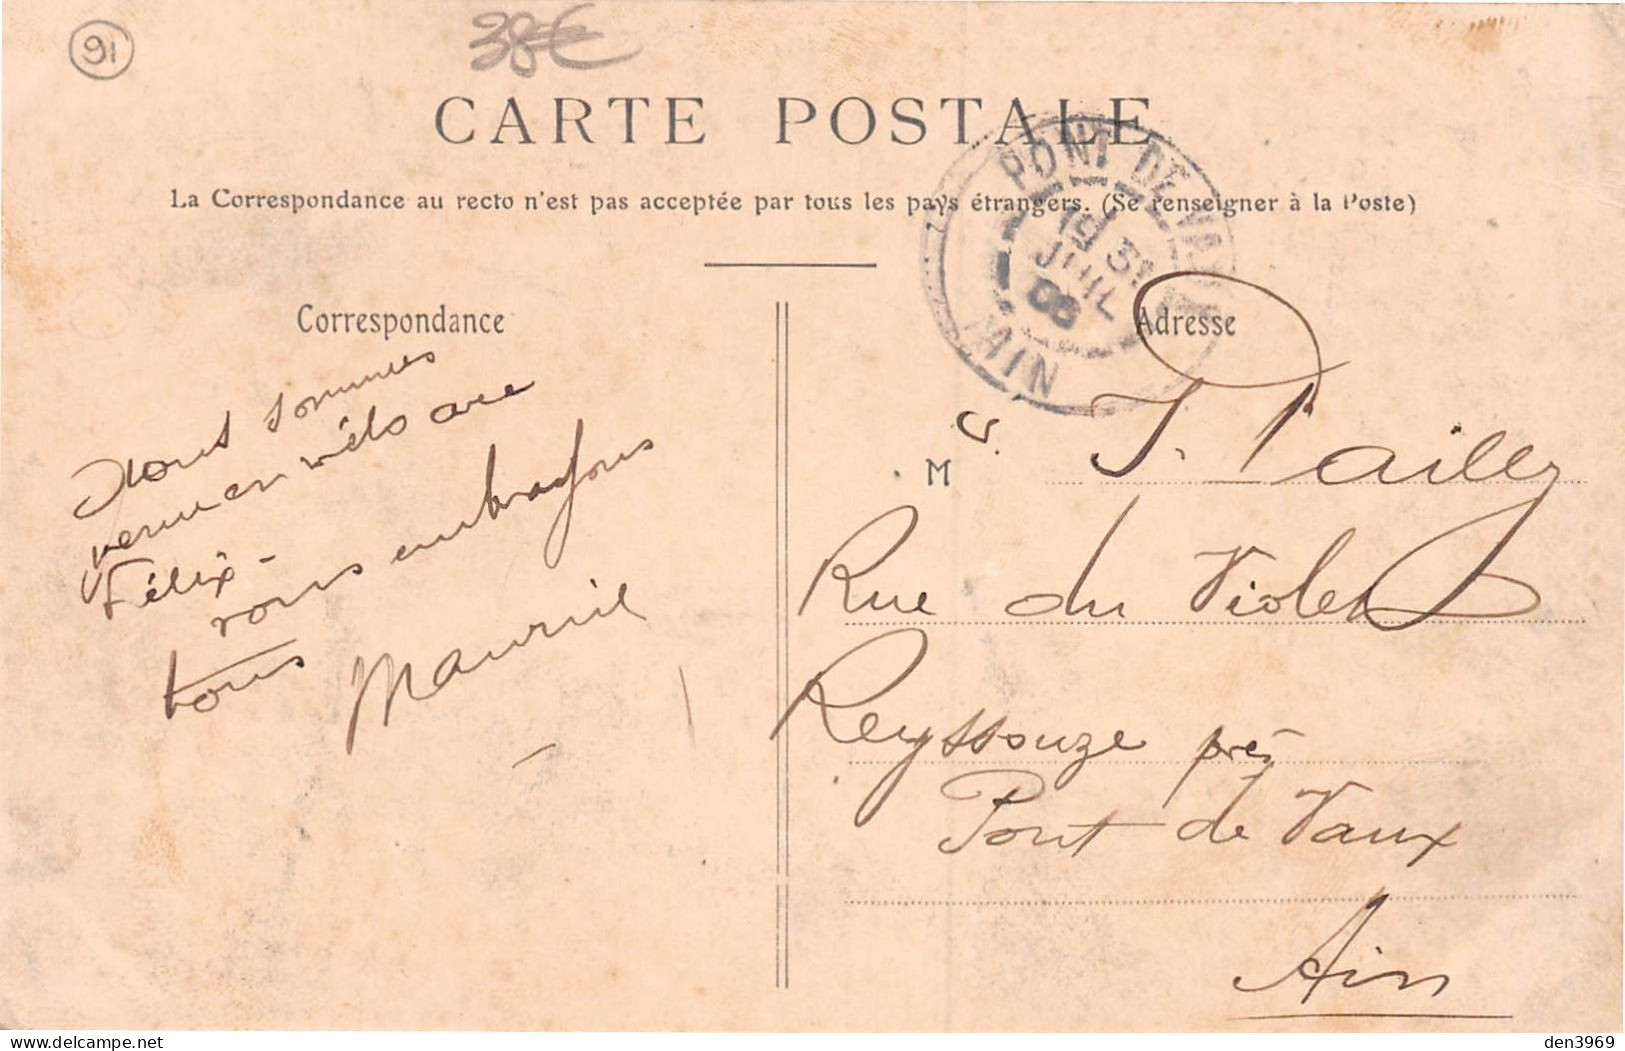 91
38€
CARTE POSTALE
La Correspondance au recto n'est pas acceptée par tous les pays étrangers. (Se renseigner à la Poste)
PONT-DE-VAUX
19 31
JUIL
06
AIN
Correspondance
Nous sommes
venu en vélo avec
Félix -
vous embrassons
tous
Maurice
Adresse
M J. Pailley
Rue du Violet
Reyssouze près
Pont de Vaux
Ain
den3969